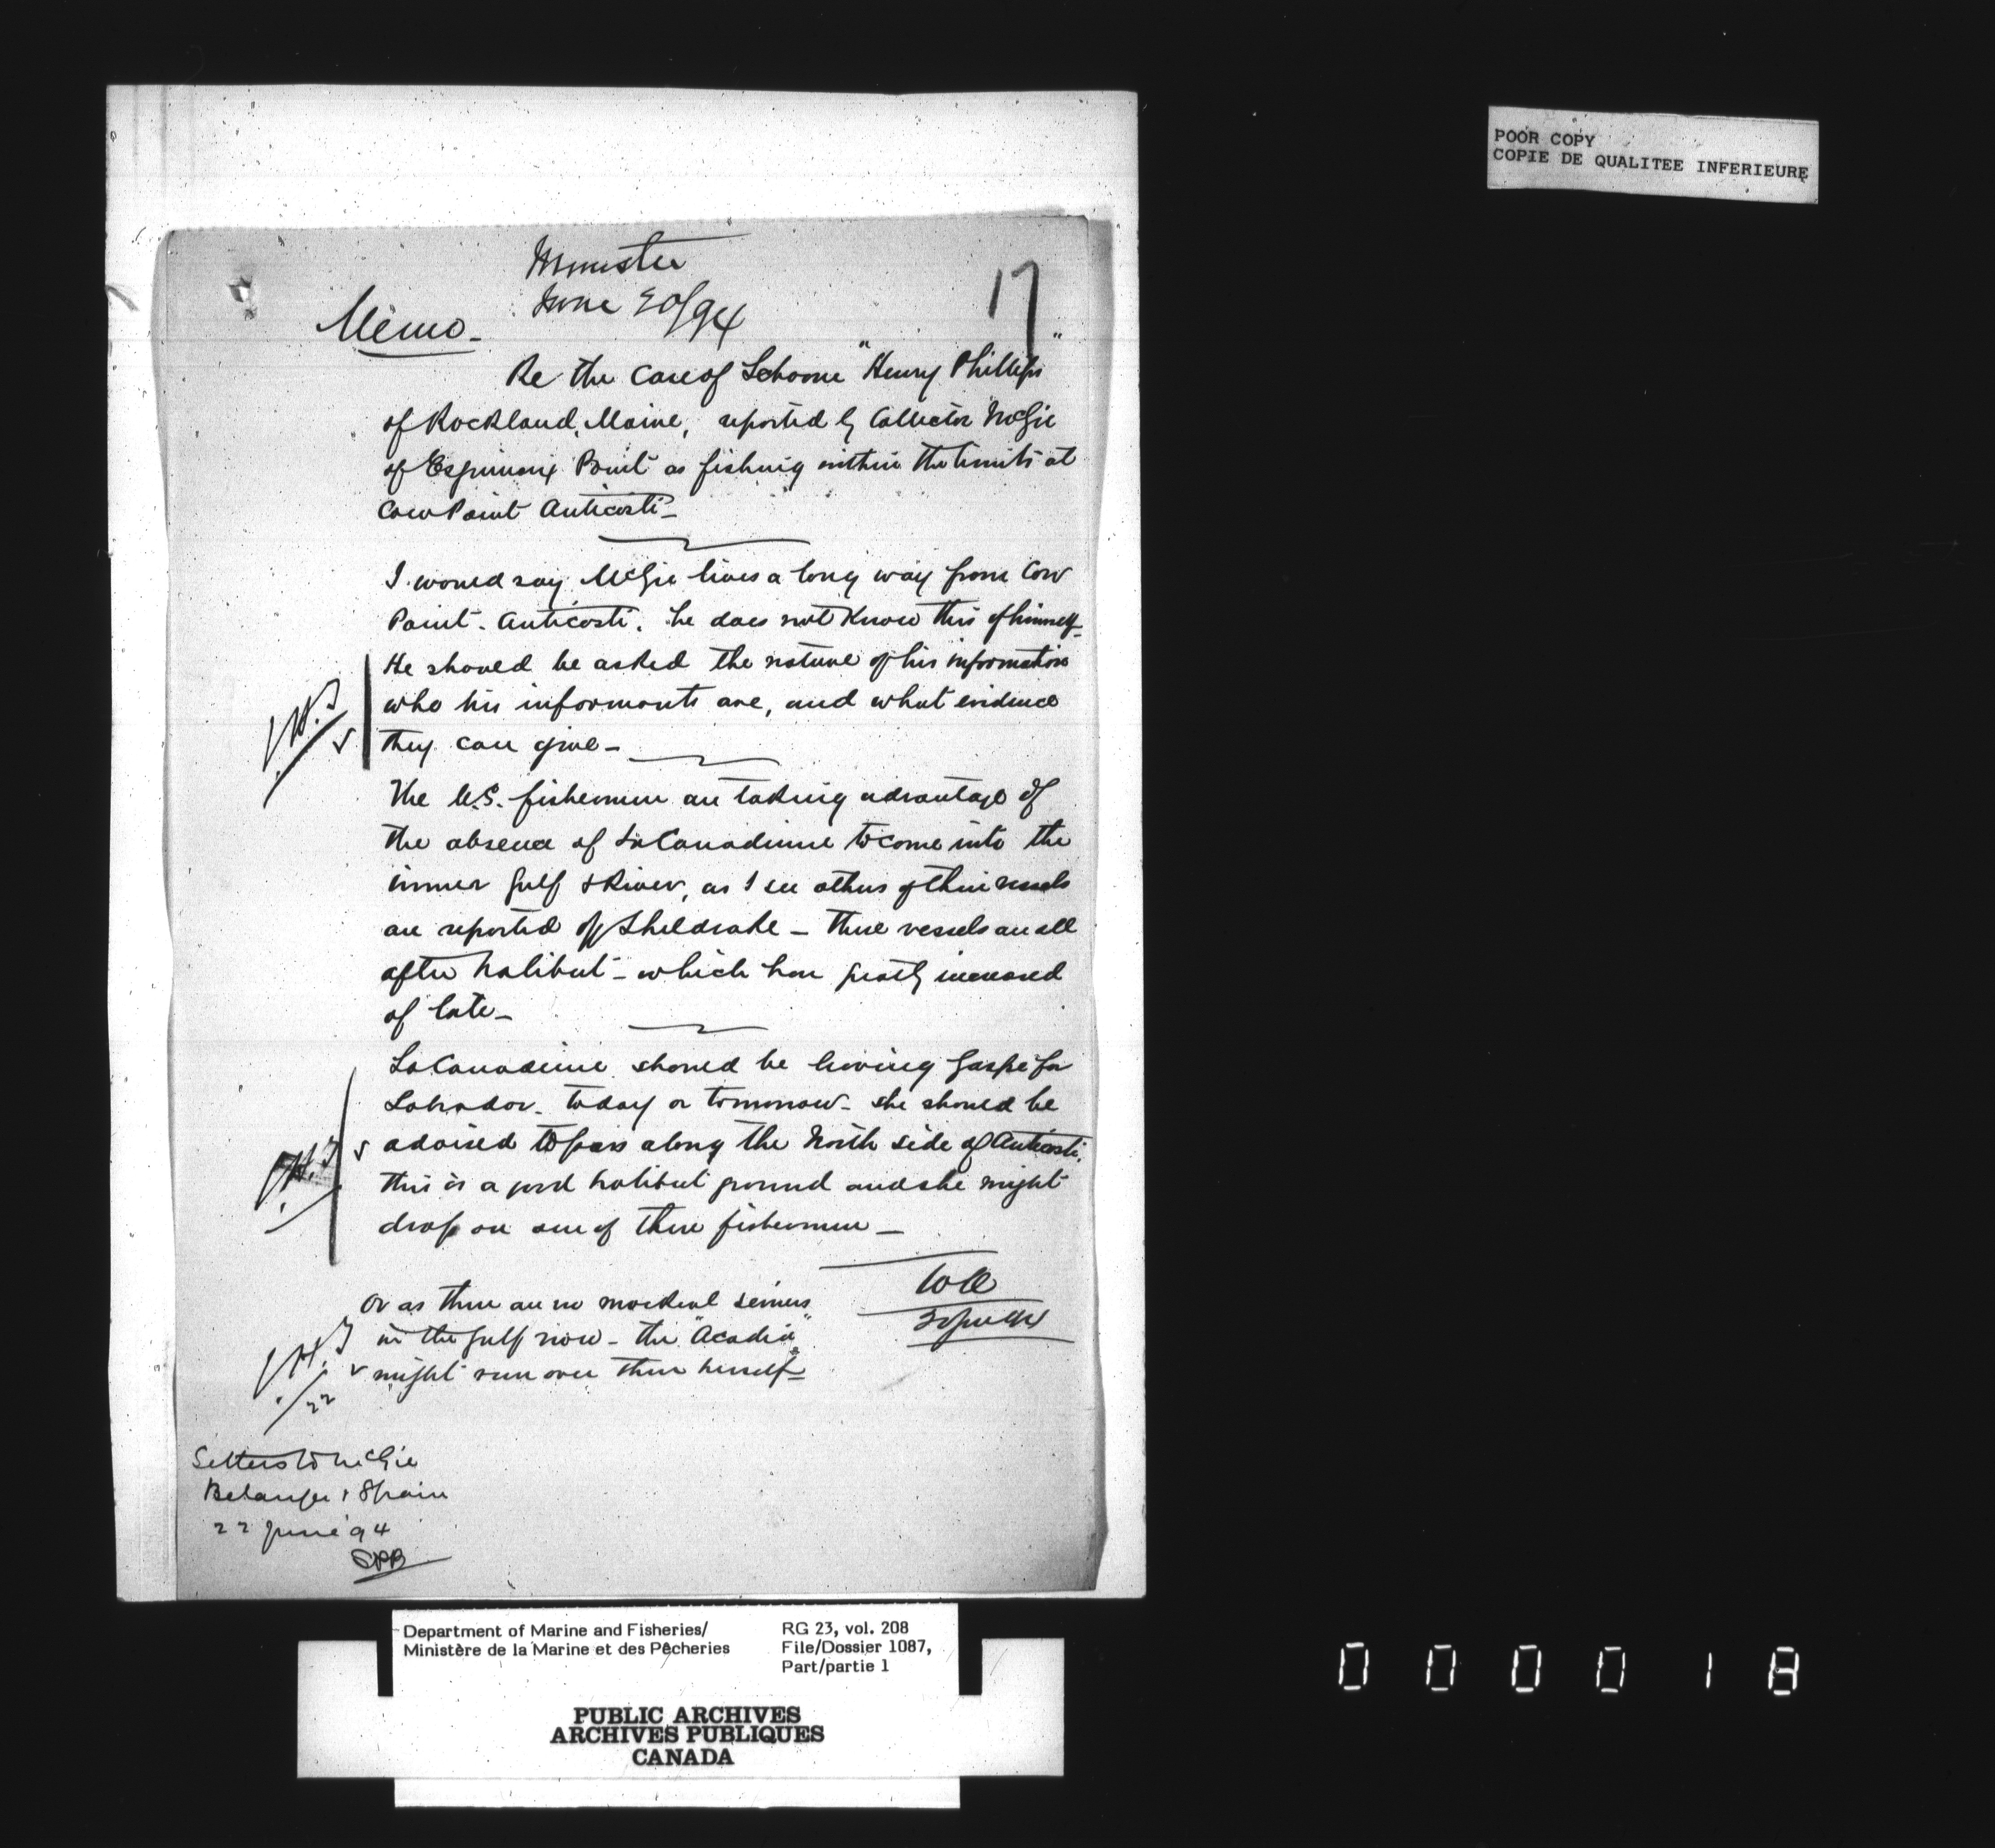 POOR COPY
COPIE DE QUALITEE INFERIEURE
Minister
June 20/94
17
Memo -
Re the case of Schooner "Henry Phillips"
of Rockland, Maine, reported by Collector McGie
of Esquimaux Point as fishing within the limits at
Cow Point Anticosti -
I would say McGie lives a long way from Cow
Point - Anticosti. he does not know this of himself -
He should be asked the nature of his information
who his informants are, and what evidence
they can give -
The U.S. fishermen are taking advantage of
the absence of La Canadienne to come into the
inner Gulf & River, as I see others of their vessels
are reported off Sheldrake - These vessels are all
after halibut - which have greatly increased
of late -
La Canadienne should be leaving Gaspé for
Labrador - today or tomorrow - she should be
advised to pass along the North side of Anticosti.
this is a good halibut ground and she might
drop on one of these fishermen -
Or as there are no mackerel seiners
in the Gulf now - the "Acadia"
might run over there herself -
22
Letters to McGie
Belanger & Spain
22 June 94
Department of Marine and Fisheries/
Ministère de la Marine et des Pêcheries
RG 23, vol. 208
File/Dossier 1087,
Part/partie 1
PUBLIC ARCHIVES
ARCHIVES PUBLIQUES
CANADA
000018